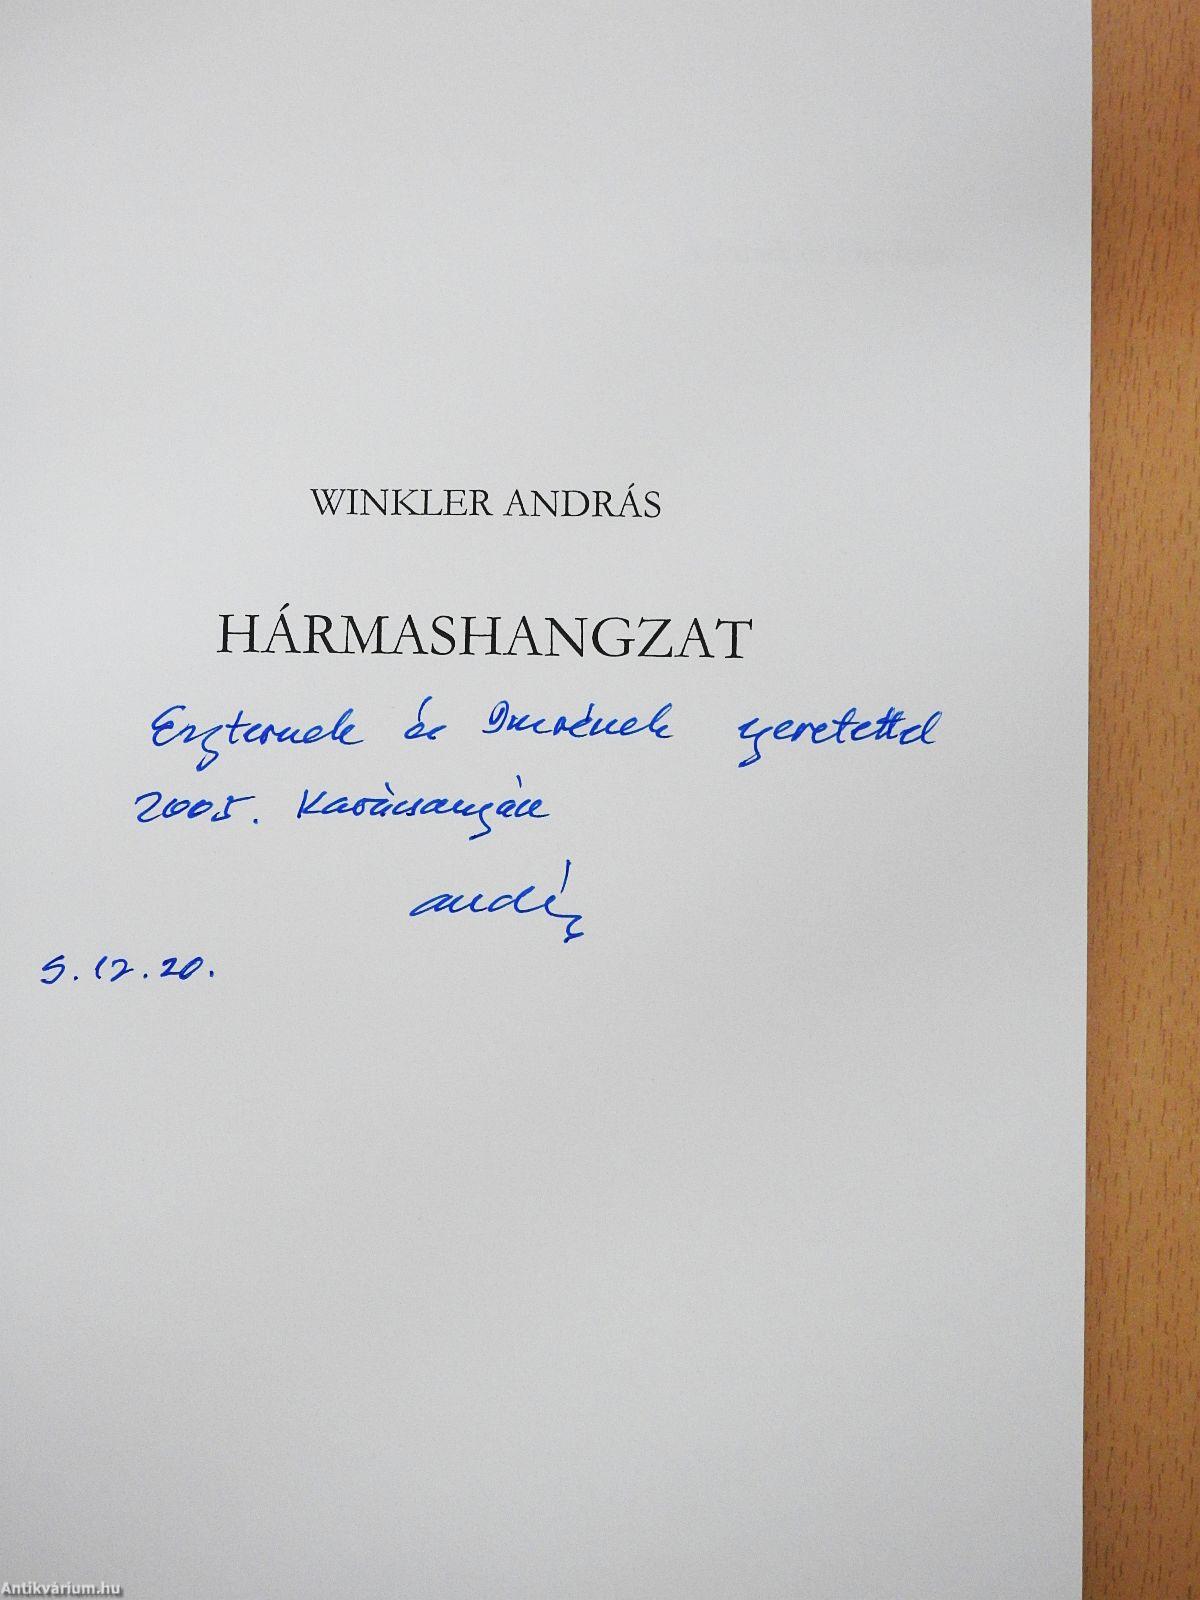 WINKLER ANDRÁS
HÁRMASHANGZAT
Eszternek és Imrének szeretettel
2005. Karácsonyán
András
S. 12. 20.
Antikvárium.hu